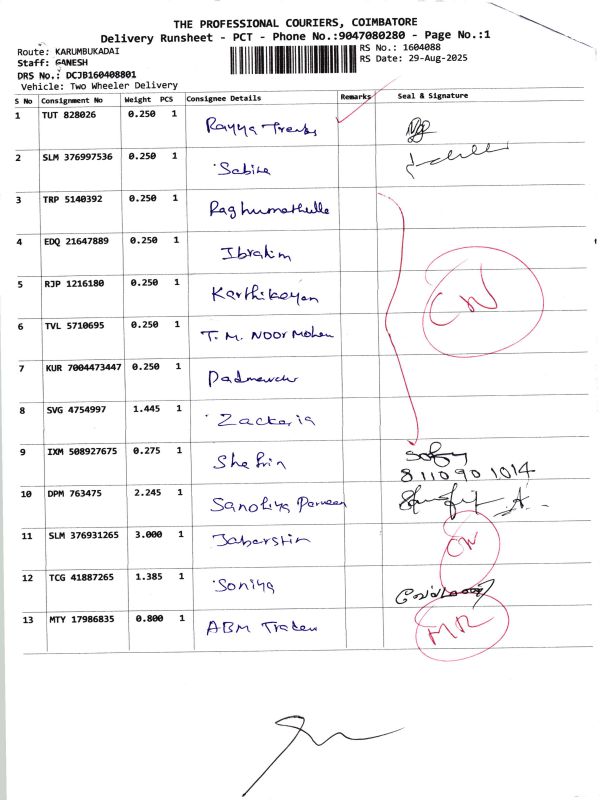 THE PROFESSIONAL COURIERS, COIMBATORE
Delivery Runsheet - PCT - Phone No.:9047080280 - Page No.:1
Route: KARUMBUKADAI
RS No.: 1604088
Staff: GANESH
RS Date: 29-Aug-2025
DRS No.: DCJB160408801
Vehicle: Two Wheeler Delivery
S No Consignment No Weight PCS Consignee Details Remarks Seal & Signature
1 TUT 828026 0.250 1 Rayya
2 SLM 376997536 0.250 1 Sabira
3 TRP 5140392 0.250 1 Raghumathulla
4 EDQ 21647889 0.250 1 Ibrahim
5 RJP 1216180 0.250 1 Karthikeyan CN
6 TVL 5710695 0.250 1 T. M. NOOR Mohan
7 KUR 7004473447 0.250 1
8 SVG 4754997 1.445 1 Zackaria
9 IXM 508927675 0.275 1 Shefrin
8110901014
10 DPM 763475 2.245 1 Parveen
11 SLM 376931265 3.000 1 CN
12 TCG 41887265 1.385 1 Soniya
13 MTY 17986835 0.800 1 ABM Traders MR